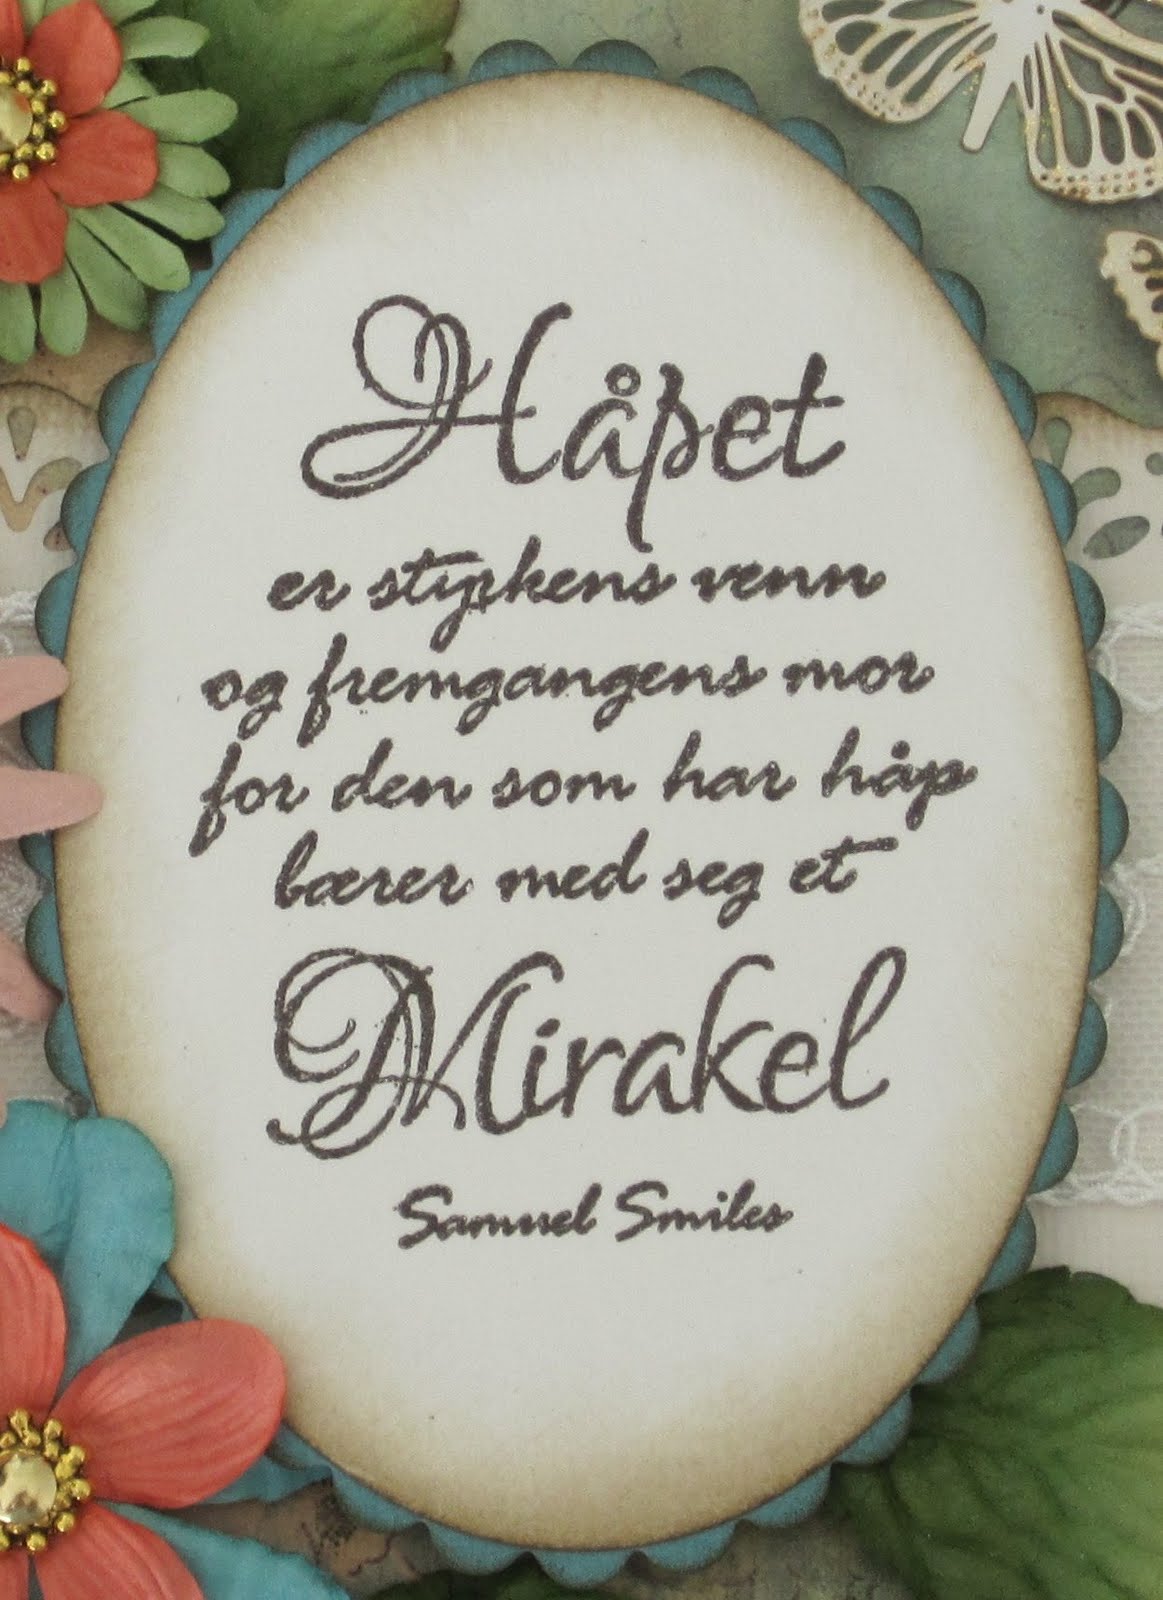 Håpet
er styrkens venn
og fremgangens mor
for den som har håp
bærer med seg et
Mirakel
Samuel Smiles